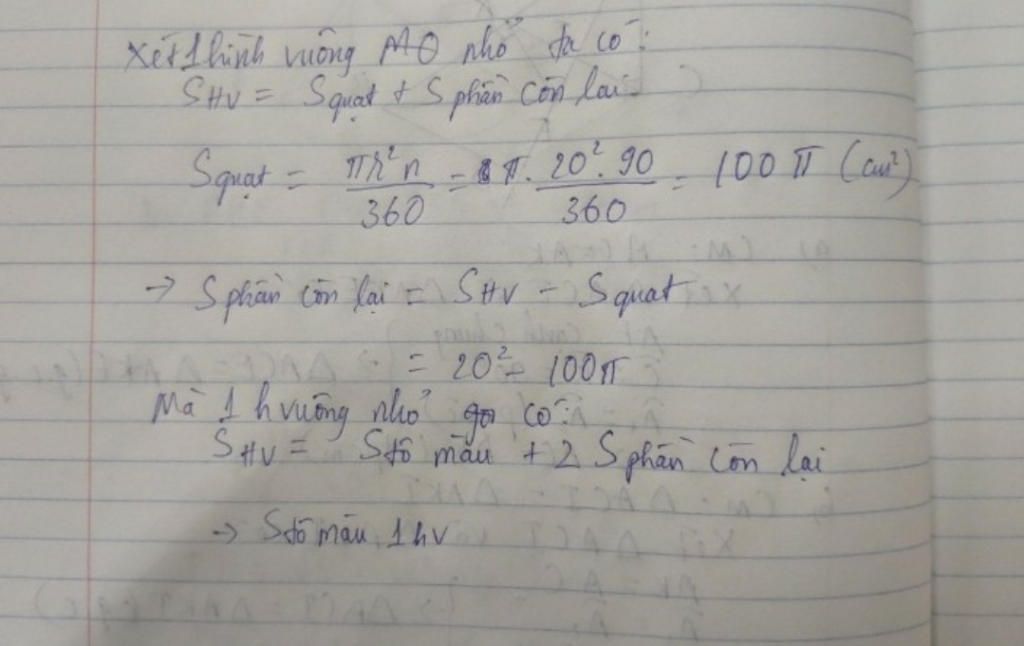 Xét 1 hình vuông MO nhỏ ta có:
SHV = Squạt + S phần còn lại
Squạt = πr²n/360 = π. 20².90/360 = 100 π (cm²)
→ S phần còn lại = SHV - Squạt
= 20² - 100π
Mà 1 hvuông nhỏ có:
SHV = Stô màu + 2 S phần còn lại
→ Stô màu 1hv